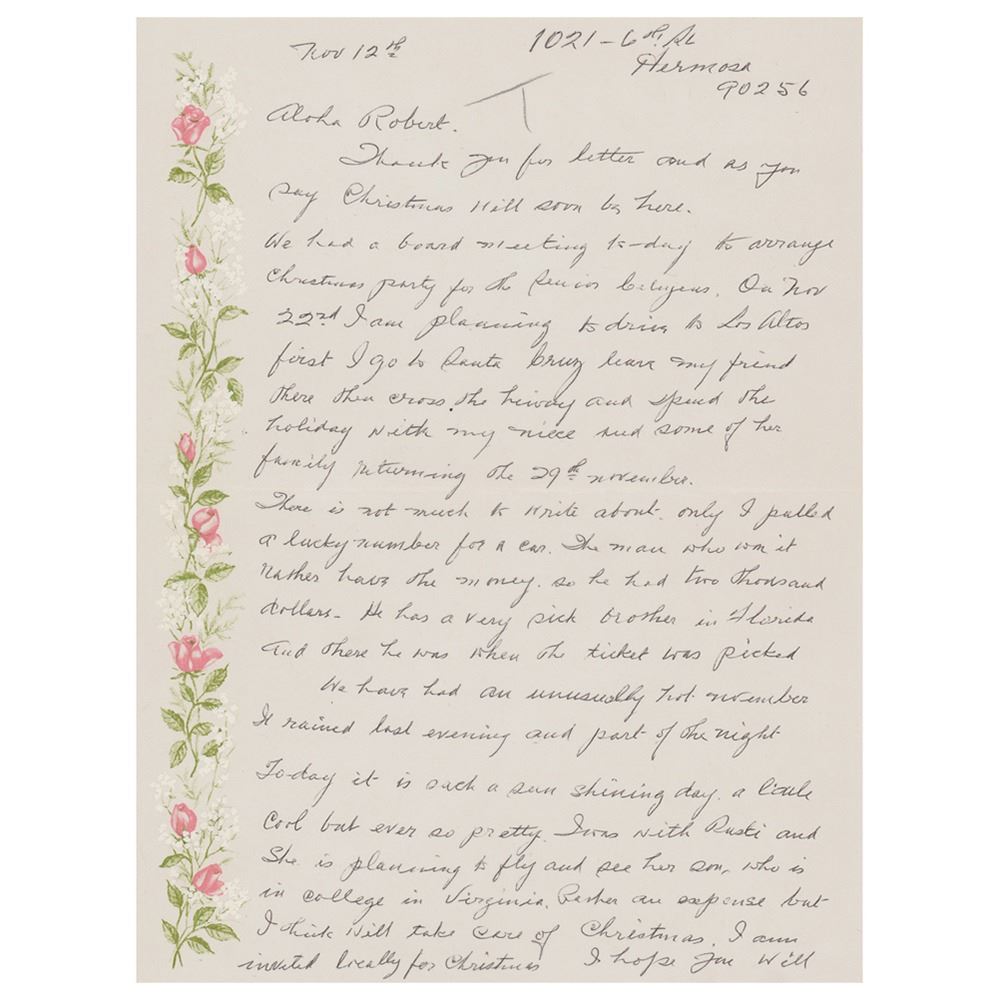 Nov 12th
1021 - 6th St
Hermosa
90256
Aloha Robert.
Thank you for letter and as you
say Christmas Will soon be here.
We had a board meeting to-day to arrange
Christmas party for the Senior Citizens. On Nov
22nd I am planning to drive to Los Altos
first I go to Santa Cruz leave my friend
there then cross the hiway and spend the
holiday With my niece and some of her
family returning the 29th november.
There is not much to Write about. only I pulled
a lucky number for a car. The man who won it
Rather have the money. so he had two thousand
dollars - He has a very sick brother in Florida
and there he was When the ticket was picked
We have had an unusually hot november
It rained last evening and part of the night
To-day it is such a sun shining day. a little
Cool but ever so pretty. I was with Rusti and
She is planning to fly and see her son, who is
in college in Virginia. Rather an expense but
I think Will take care of Christmas. I am
invited locally for Christmas I hope you Will